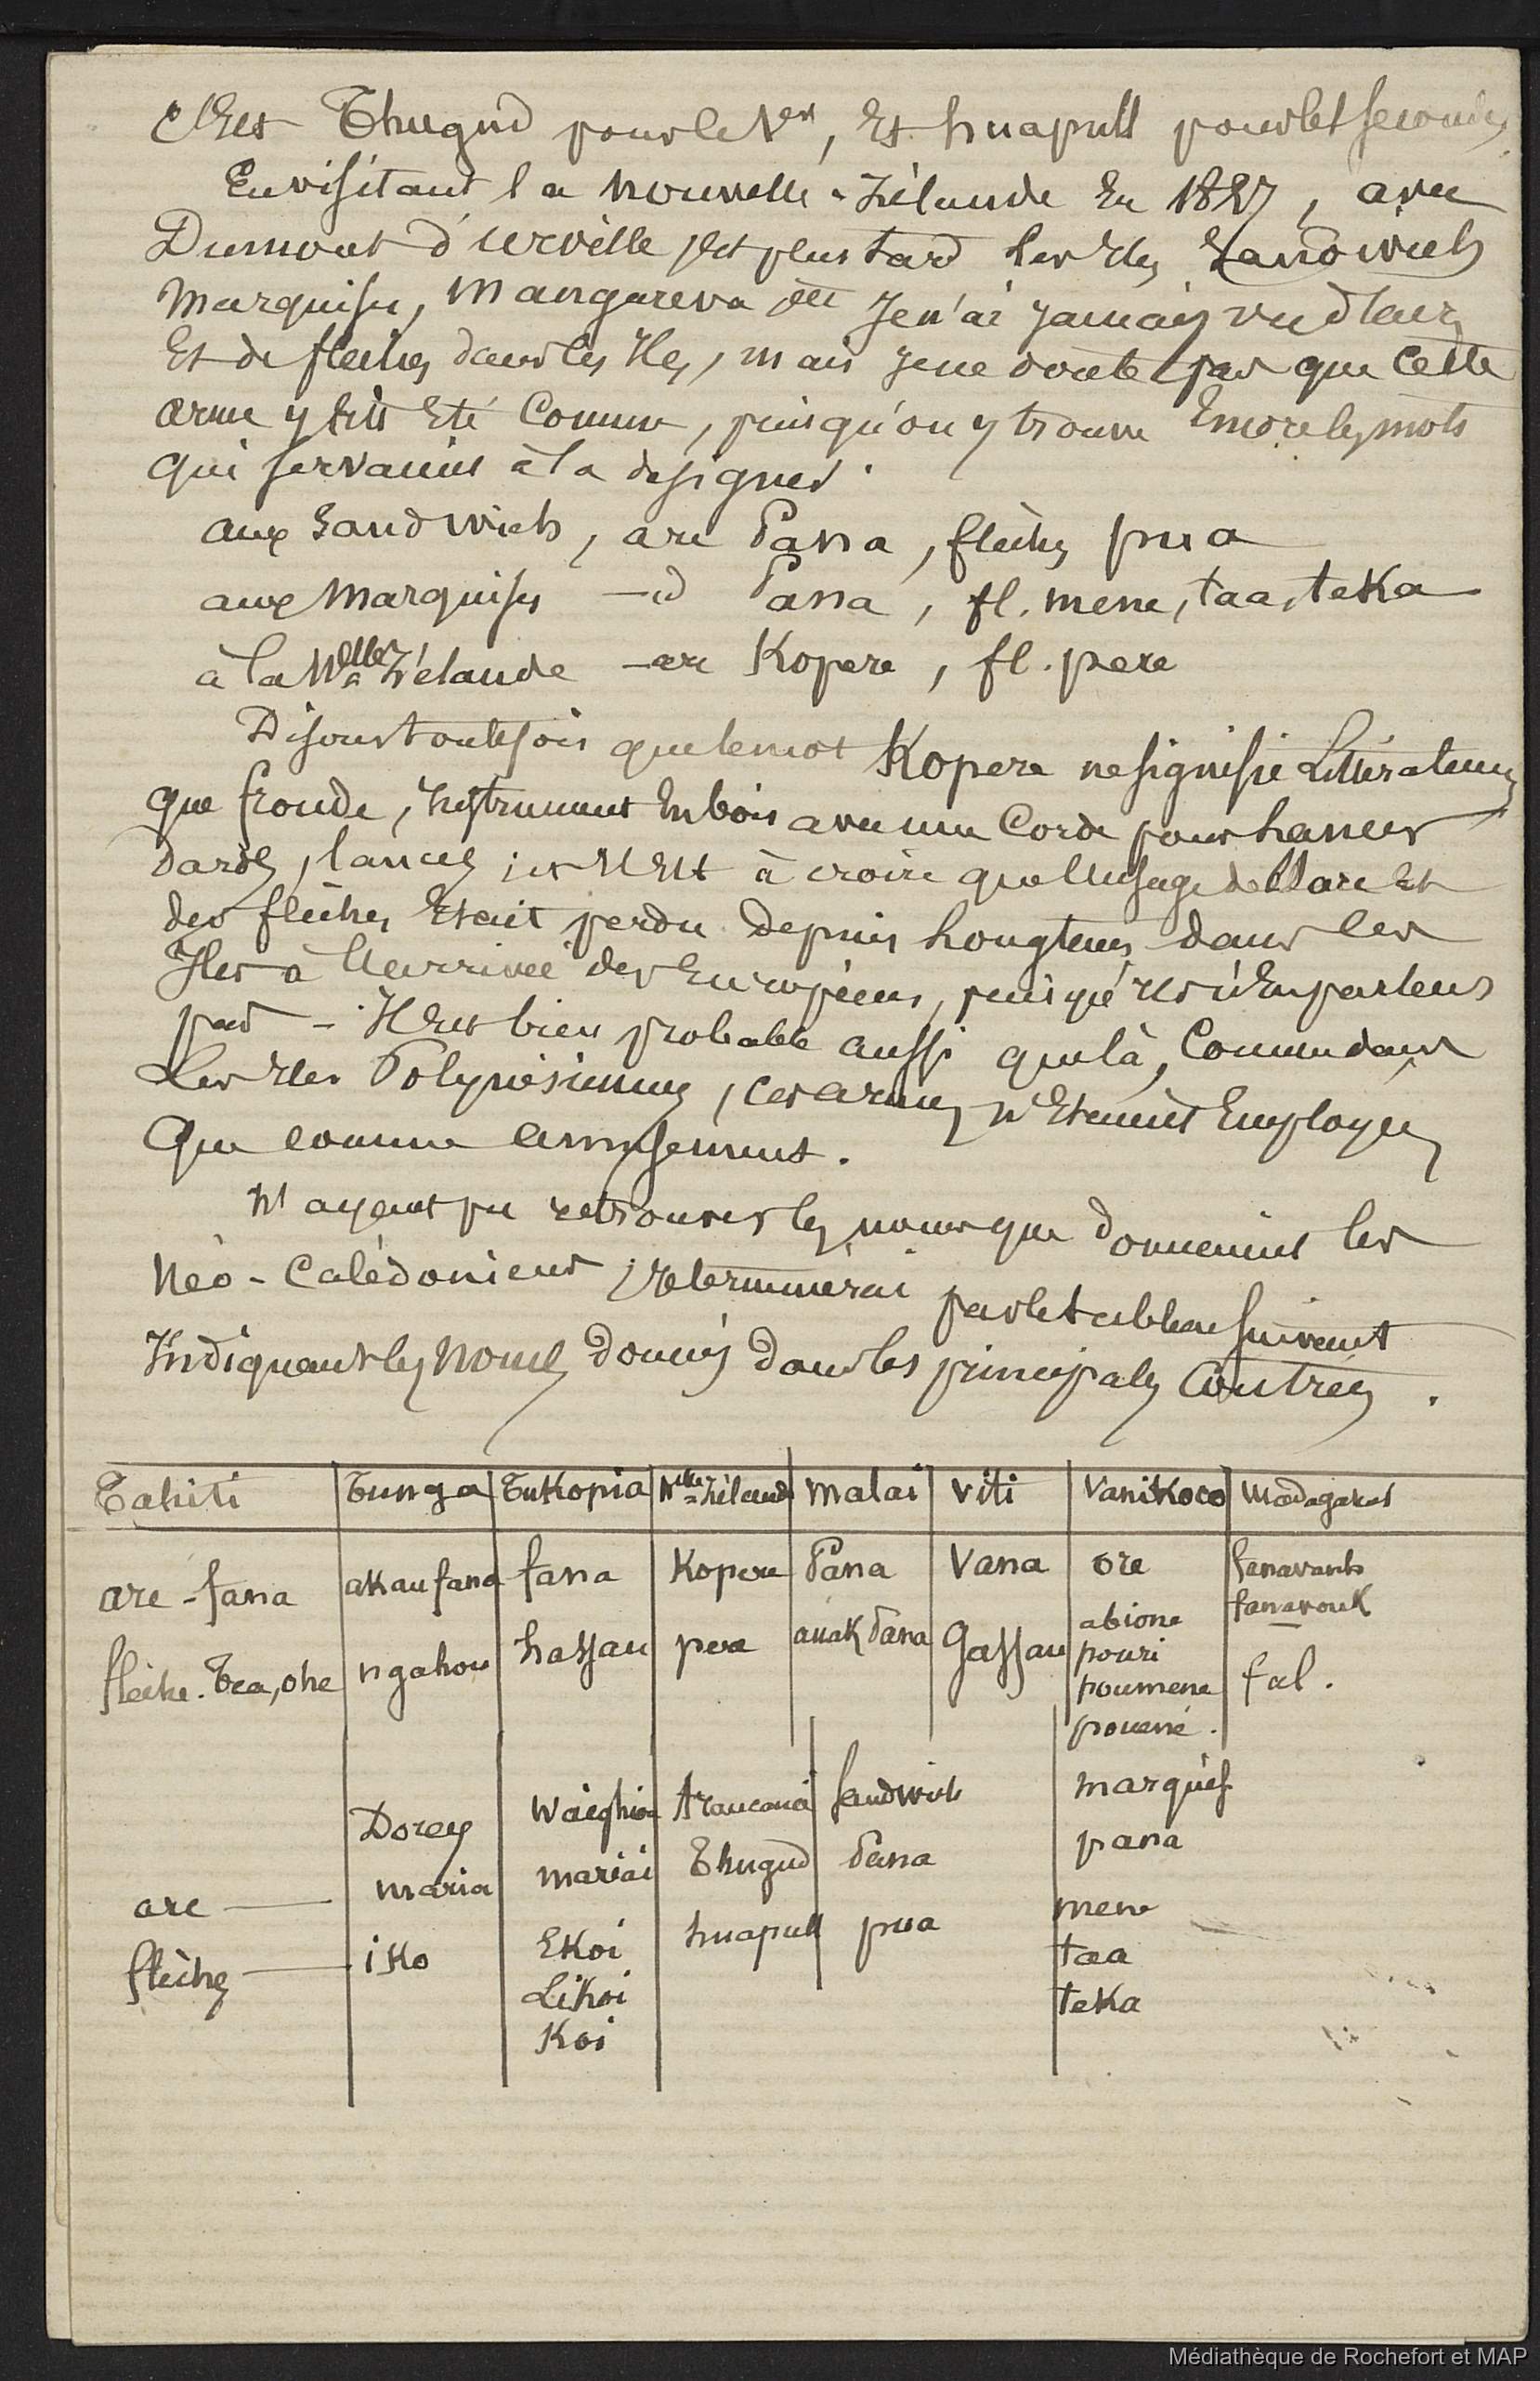 C'est Thugud pour le 1er, et huapull pour les secondes
En visitant la nouvelle-Zélande en 1827, avec
Dumont d'urville et plus tard les Iles Sandwich
Marquises, Mangareva etc je n'ai jamais vu d'arc
et de flèches dans les Iles, mais je ne doute pas que cette
arme y ait été connue, puisqu'on y trouve encore les mots
qui servaient à la désigner.
aux Sandwich, arc Pana, flèches pua
aux Marquises —id Pana, fl. mene, taa, teka
à la Nelle Zélande —arc Kopere, fl. pere
Disons toutefois que le mot Kopere ne signifie Littéralement
que fronde, instrument en bois avec une corde pour lancer
dards, lances; et il est à croire que l'usage de l'arc et
des flèches était perdu depuis longtemps dans les
Iles à l'arrivée des Européens, puisqu'ils n'en parlent
pas – Il est bien probable aussi que là, comme dans
Les Iles Polynésiennes, ces armes n'étaient employées
que comme amusement.
N'ayant pu retrouver les noms que donnaient les
Néo-Calédoniens je terminerai par le tableau suivant
Indiquant les noms donnés dans les principales contrées.
Tahiti Tunga Tukopia Nelle-Zéland Malai Viti Vanikoro Madagascar
arc - fana akaufana fana Kopere Pana Vana ore fanavank
fanavouk
flèche. Tea, ohe ngahou hassau pere anak Pana Gassau abione
pouri
poumene
pouene. fal.
Dorey Waighiou Araucania Sandwich marquis
arc — maria mariai Thugud Pana pana
flèches — iko Ekoi huapull pua mene
Likoi taa
Koi teka
Médiathèque de Rochefort et MAP